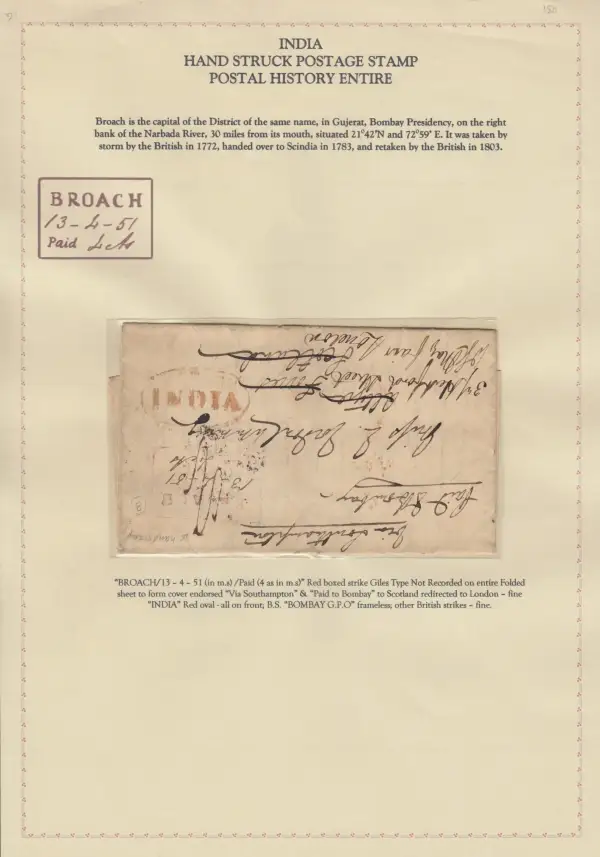 INDIA
HAND STRUCK POSTAGE STAMP
POSTAL HISTORY ENTIRE
Broach is the capital of the District of the same name, in Gujerat, Bombay Presidency, on the right
bank of the Narbada River, 30 miles from its mouth, situated 21°42'N and 72°59' E. It was taken by
storm by the British in 1772, handed over to Scindia in 1783, and retaken by the British in 1803.
BROACH
13-4-51
Paid 4 As
Via Southampton
Paid to Bombay
Miss L.
Street
London
Scotland
INDIA
13
51
"BROACH/13 – 4 – 51 (in m.s) /Paid (4 as in m.s)" Red boxed strike Giles Type Not Recorded on entire Folded
sheet to form cover endorsed "Via Southampton" & "Paid to Bombay" to Scotland redirected to London – fine
"INDIA" Red oval - all on front; B.S. "BOMBAY G.P.O" frameless; other British strikes – fine.